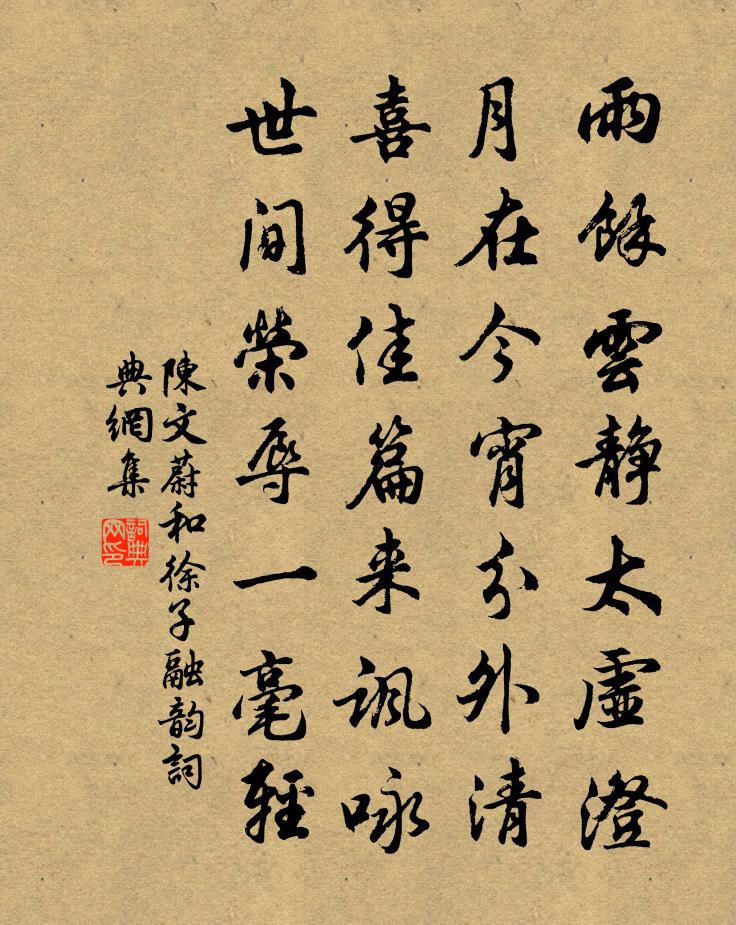 雨餘雲靜太虛澄
月在今宵分外清
喜得佳篇来諷咏
世間榮辱一毫輕
陳文蔚和徐子融韵詞
典網集
詞典
网印